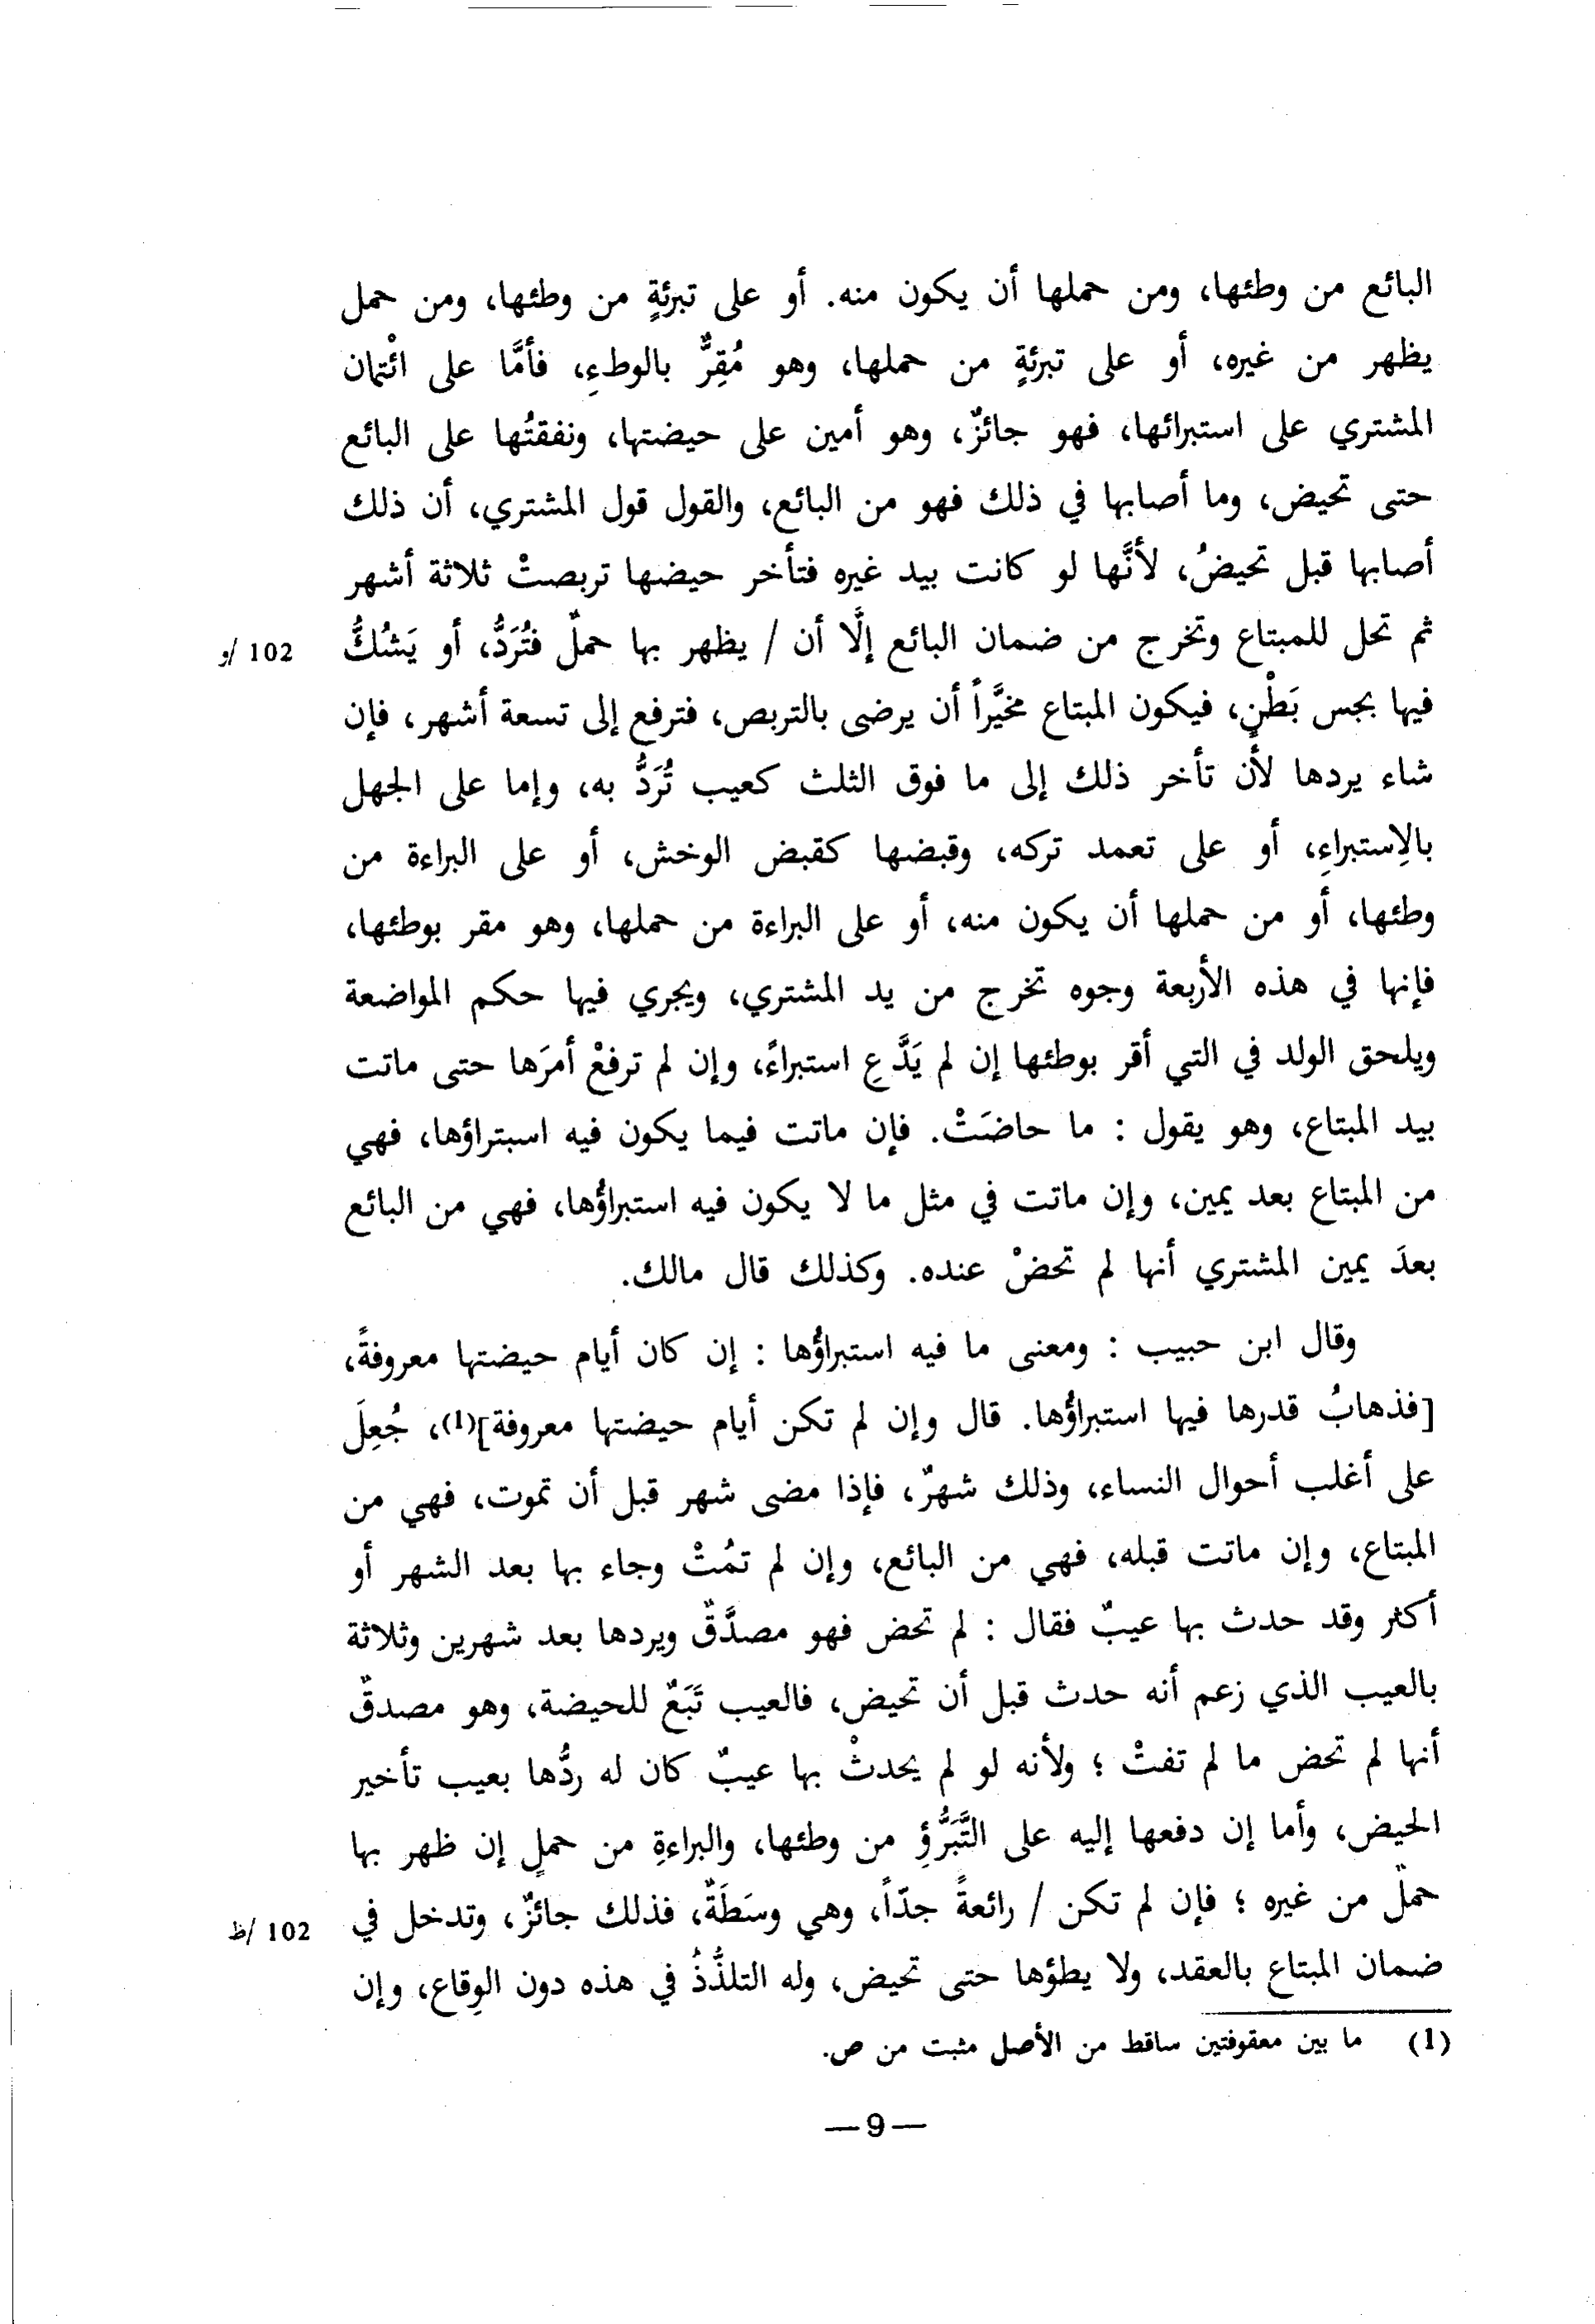 البائع من وطئها، ومن حملها أن يكون منه. أو على تبرئةٍ من وطئها، ومن حمل
يظهر من غيره، أو على تبرئةٍ من حملها، وهو مُقِرٌّ بالوطءِ، فأمَّا على ائْتمان
المشتري على استبرائها، فهو جائزٌ، وهو أمين على حيضتها، ونفقتُها على البائع
حتى تحيض، وما أصابها في ذلك فهو من البائع، والقول قول المشتري، أن ذلك
أصابها قبل تحيضُ، لأنَّها لو كانت بيد غيره فتأخر حيضها تربصتْ ثلاثة أشهر
ثم تحل للمبتاع وتخرج من ضمان البائع إلَّا أن / يظهر بها حملٌ فتُرَدُّ، أو يَشُكُّ 102 /و
فيها بجس بَطْنٍ، فيكون المبتاع مخيَّراً أن يرضى بالتربص، فترفع إلى تسعة أشهر، فإن
شاء يردها لأن تأخر ذلك إلى ما فوق الثلث كعيب تُرَدُّ به، وإما على الجهل
بالإِستبراءِ، أو على تعمد تركه، وقبضها كقبض الوخش، أو على البراءة من
وطئها، أو من حملها أن يكون منه، أو على البراءة من حملها، وهو مقر بوطئها،
فإنها في هذه الأربعة وجوه تخرج من يد المشتري، ويجري فيها حكم المواضعة
ويلحق الولد في التي أقر بوطئها إن لم يَدَّعِ استبراءً، وإن لم ترفعْ أمرَها حتى ماتت
بيد المبتاع، وهو يقول : ما حاضَتْ. فإن ماتت فيما يكون فيه اسبتراؤها، فهي
من المبتاع بعد يمين، وإن ماتت في مثل ما لا يكون فيه استبراؤُها، فهي من البائع
بعدَ يمين المشتري أنها لم تحضْ عنده. وكذلك قال مالك.
وقال ابن حبيب : ومعنى ما فيه استبراؤُها : إن كان أيام حيضتها معروفةً،
[فذهابُ قدرها فيها استبراؤُها. قال وإن لم تكن أيام حيضتها معروفة](1)، جُعِلَ
على أغلب أحوال النساء، وذلك شهرٌ، فإذا مضى شهر قبل أن تموت، فهي من
المبتاع، وإن ماتت قبله، فهي من البائع، وإن لم تمُتْ وجاء بها بعد الشهر أو
أكثر وقد حدث بها عيبٌ فقال : لم تحض فهو مصدَّقٌ ويردها بعد شهرين وثلاثة
بالعيب الذي زعم أنه حدث قبل أن تحيض، فالعيب تَبَعٌ للحيضة، وهو مصدقٌ
أنها لم تحض ما لم تفتْ ؛ ولأنه لو لم يحدثْ بها عيبٌ كان له ردُّها بعيب تأخير
الحيض، وأما إن دفعها إليه على التَّبَرُّؤِ من وطئها، والبراءةِ من حملٍ إن ظهر بها
حملٌ من غيره ؛ فإن لم تكن / رائعةً جدّاً، وهي وسَطَةٌ، فذلك جائزٌ، وتدخل في 102 /ظ
ضمان المبتاع بالعقد، ولا يطؤها حتى تحيض، وله التلذُّذُ في هذه دون الوِقاع، وإن
(1) ما بين معقوفتين ساقط من الأصل مثبت من ص.
—9—